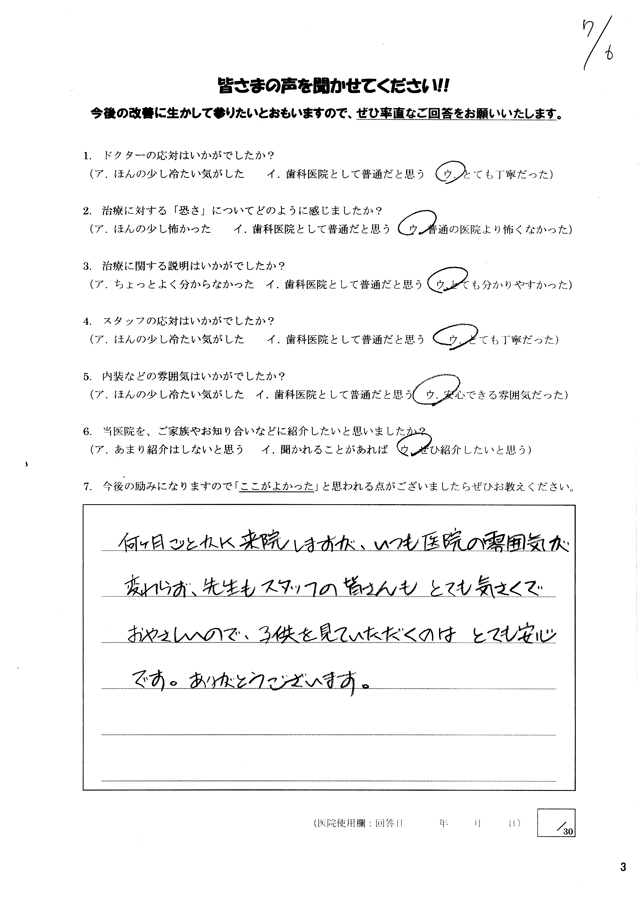 7/6
皆さまの声を聞かせてください!!
今後の改善に生かして参りたいとおもいますので、ぜひ率直なご回答をお願いいたします。
1. ドクターの応対はいかがでしたか?
(ア. ほんの少し冷たい気がした イ. 歯科医院として普通だと思う ウ. とても丁寧だった)
2. 治療に対する「恐さ」についてどのように感じましたか?
(ア. ほんの少し怖かった イ. 歯科医院として普通だと思う ウ. 普通の医院より怖くなかった)
3. 治療に関する説明はいかがでしたか?
(ア. ちょっとよく分からなかった イ. 歯科医院として普通だと思う ウ. とても分かりやすかった)
4. スタッフの応対はいかがでしたか?
(ア. ほんの少し冷たい気がした イ. 歯科医院として普通だと思う ウ. とても丁寧だった)
5. 内装などの雰囲気はいかがでしたか?
(ア. ほんの少し冷たい気がした イ. 歯科医院として普通だと思う ウ. 安心できる雰囲気だった)
6. 当医院を、ご家族やお知り合いなどに紹介したいと思いましたか?
(ア. あまり紹介はしないと思う イ. 聞かれることがあれば ウ. ぜひ紹介したいと思う)
7. 今後の励みになりますので「ここがよかった」と思われる点がございましたらぜひお教えください。
何ヶ月ごとかに来院しますが、いつも医院の雰囲気が
変わらず、先生もスタッフの皆さんも とても気さくで
おやさしいので、子供を見ていただくのは とても安心
です。ありがとうございます。
(医院使用欄:回答日 年 月 日)
/30
3